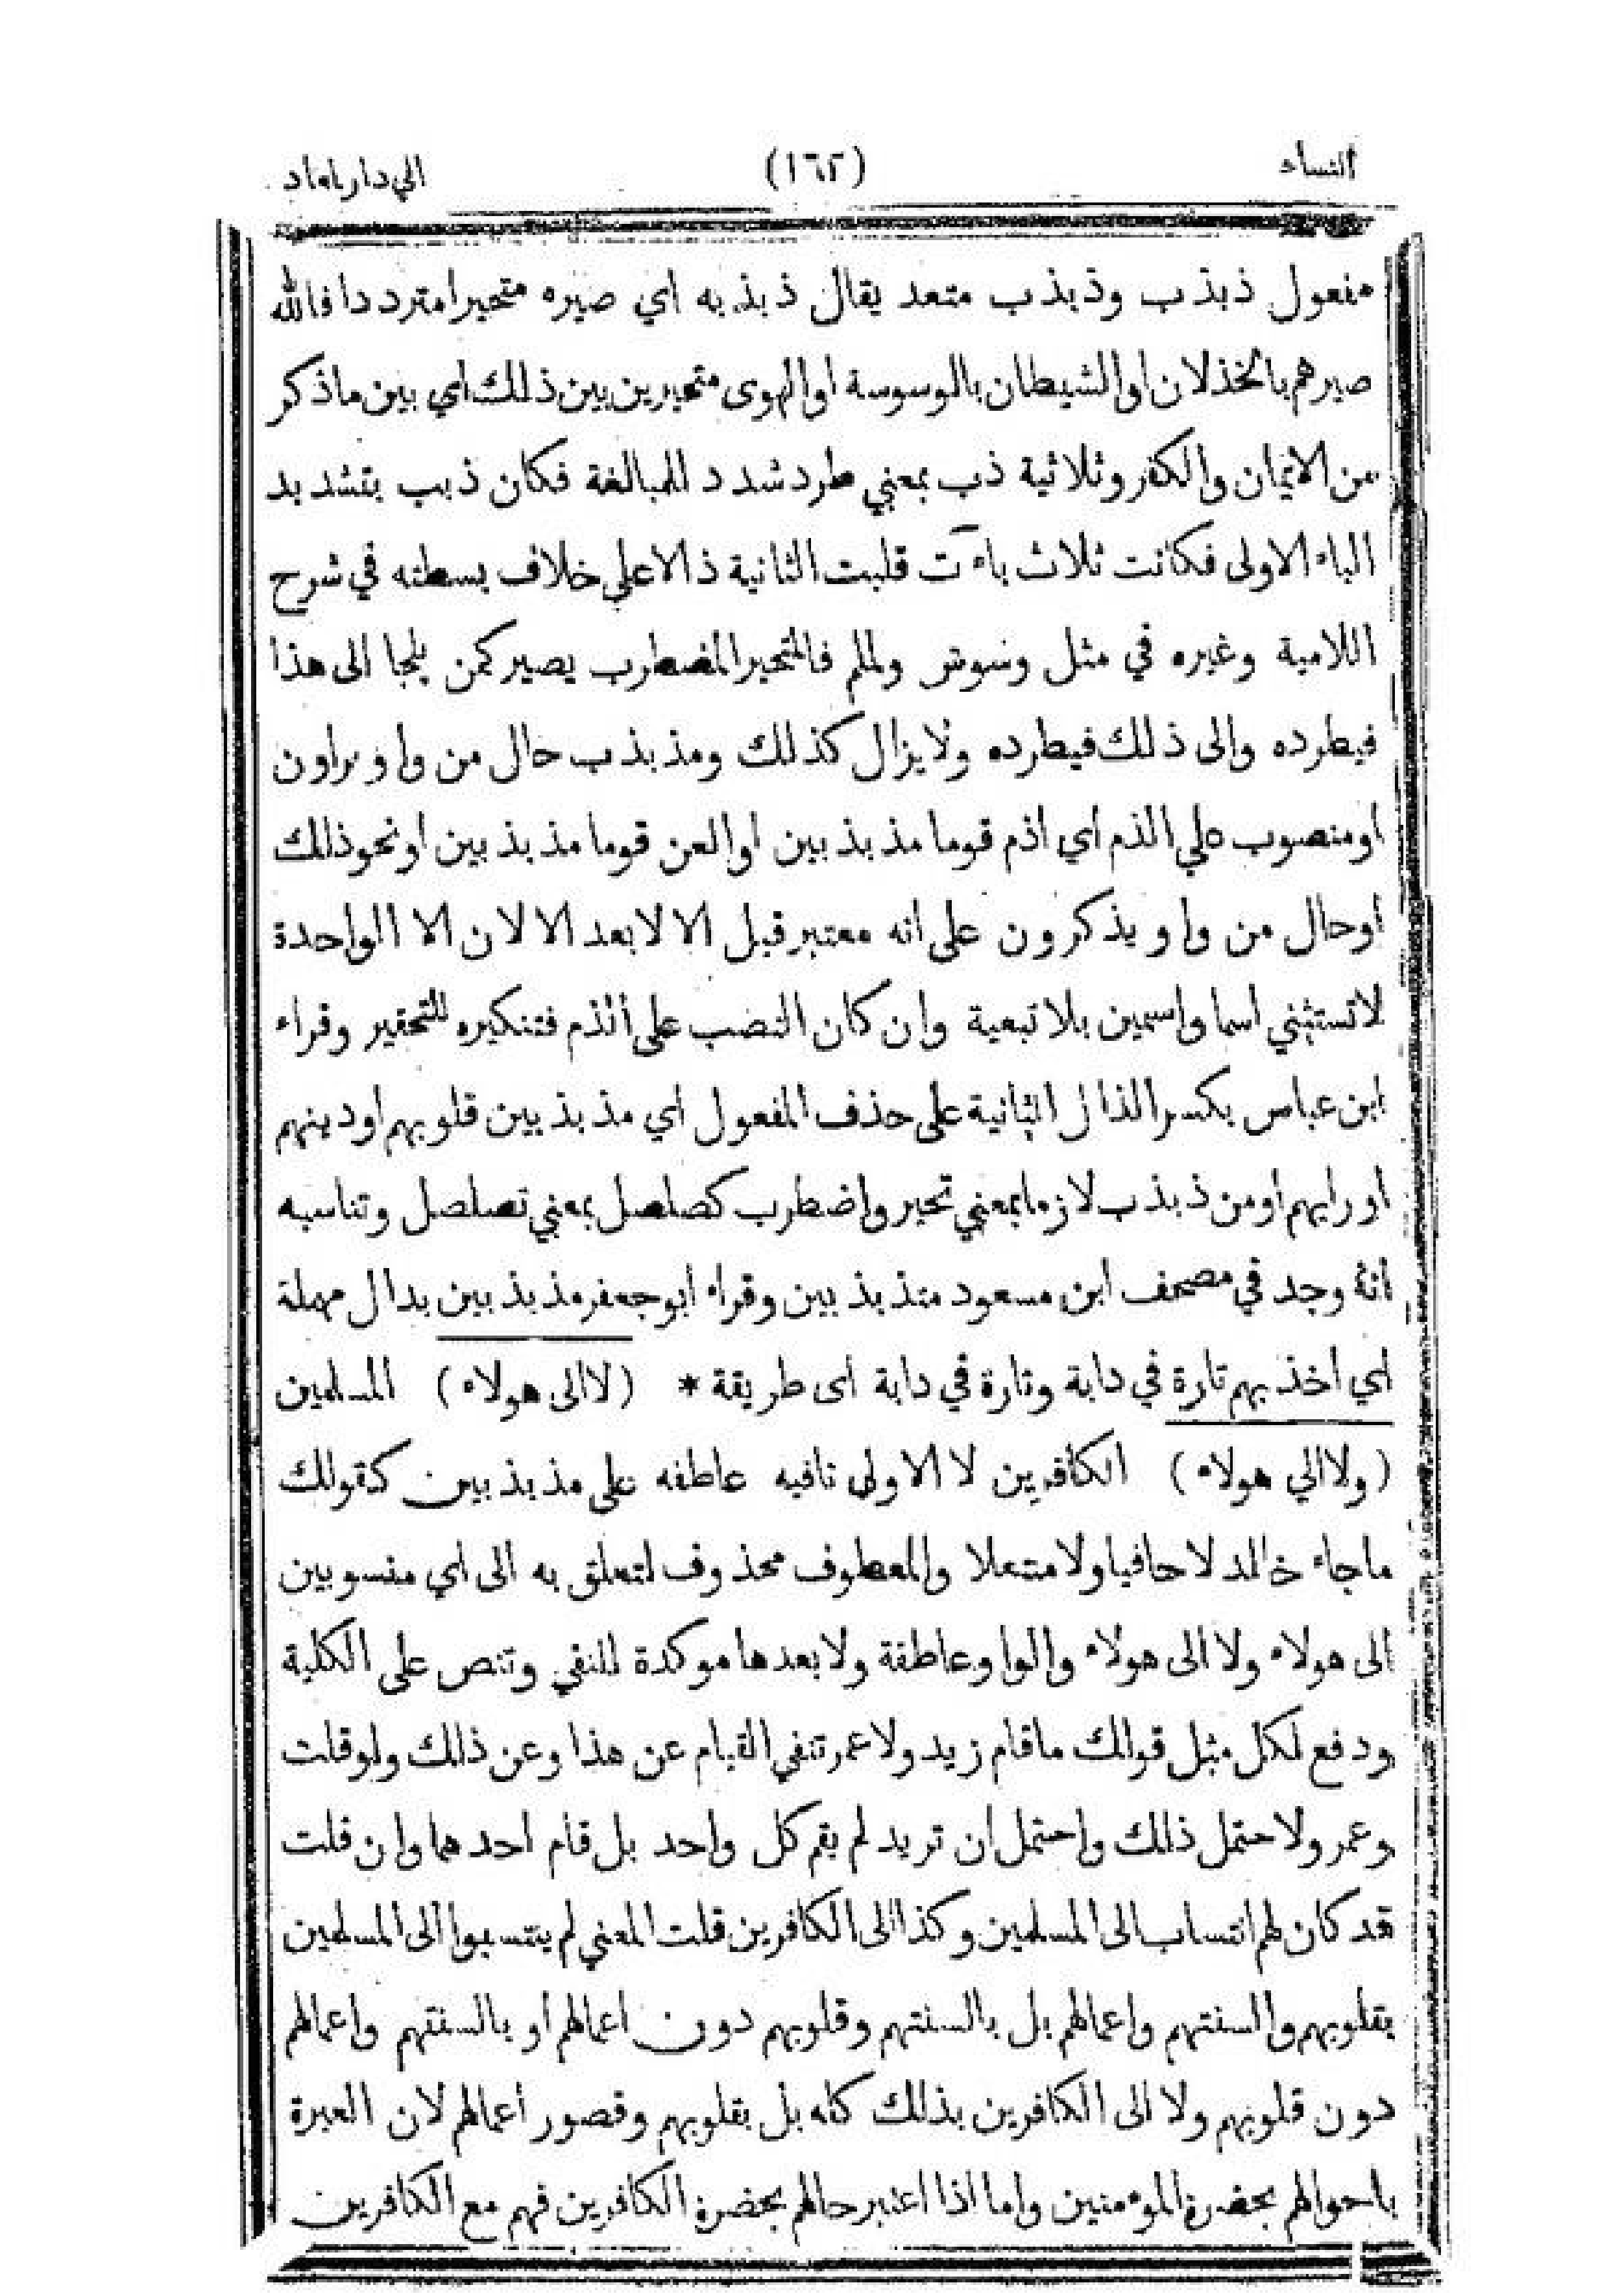 النساء (١٦٢) الي دار المعاد
مفعول ذبذب وذبذب متعد يقال ذبذبه اي صيره متحيرا مترددا فالله
صيرهم بالخذلان او الشيطان بالوسوسة او الهوى متحيرين بين ذلك اي بين ما ذكر
من الايمان والكفر وثلاثية ذب بمعني طرد شدد للمبالغة فكان ذبب بتشديد
الباء الاولى فكانت ثلاث باءآت قلبت الثانية ذالا علي خلاف بسطته في شرح
اللامية وغيره في مثل وسوس ولملم فالمتحير المضطرب يصير كمن يلجا الى هذا
فيطرده والى ذلك فيطرده ولا يزال كذلك ومذبذب حال من واو يراون
او منصوب علي الذم اي اذم قوما مذبذبين او العن قوما مذبذبين او نحو ذلك
او حال من واو يذكرون على انه معتبر قبل الا لا بعد الا لان الا الواحدة
لا تستثني اسما واسمين بلا تبعية وان كان النصب على الذم فتنكيره للتحقير وقراء
ابن عباس بكسر الذال الثانية على حذف المفعول اي مذبذبين قلوبهم او دينهم
او رايهم او من ذبذب لازما بمعني تحير واضطرب كصلصل بمعني تصلصل وتناسبه
انه وجد في مصحف ابن مسعود متذبذبين وقراء ابو جعفر مذبذبين بدال مهملة
اي اخذ بهم تارة في دابة وتارة في دابة اى طريقة * (لا الى هولاء) المسلمين
(ولا الي هولاء) الكافرين لا الاولى نافيه عاطفه على مذبذبين كقولك
ما جاء خالد لا حافيا ولا متنعلا والمعطوف محذوف لتعلق به الى اي منسوبين
الى هولاء ولا الى هولاء والواو عاطفة ولا بعدها موكدة للنفي وتنص على الكلية
ودفع لكل مثل قولك ما قام زيد ولا عمر تنفي القيام عن هذا وعن ذلك ولو قلت
وعمرو لاحتمل ذلك واحتمل ان تريد لم يقم كل واحد بل قام احدهما وان قلت
قد كان لهم انتساب الى المسلمين وكذا الى الكافرين قلت المعني لم ينتسبوا الى المسلمين
بقلوبهم والسنتهم واعمالهم بل بالسنتهم وقلوبهم دون اعمالهم او بالسنتهم واعمالهم
دون قلوبهم ولا الى الكافرين بذلك كله بل بقلوبهم وقصور أعمالهم لان العبرة
باحوالهم بحضرة المومنين واما اذا اعتبر حالهم بحضرة الكافرين فهم مع الكافرين